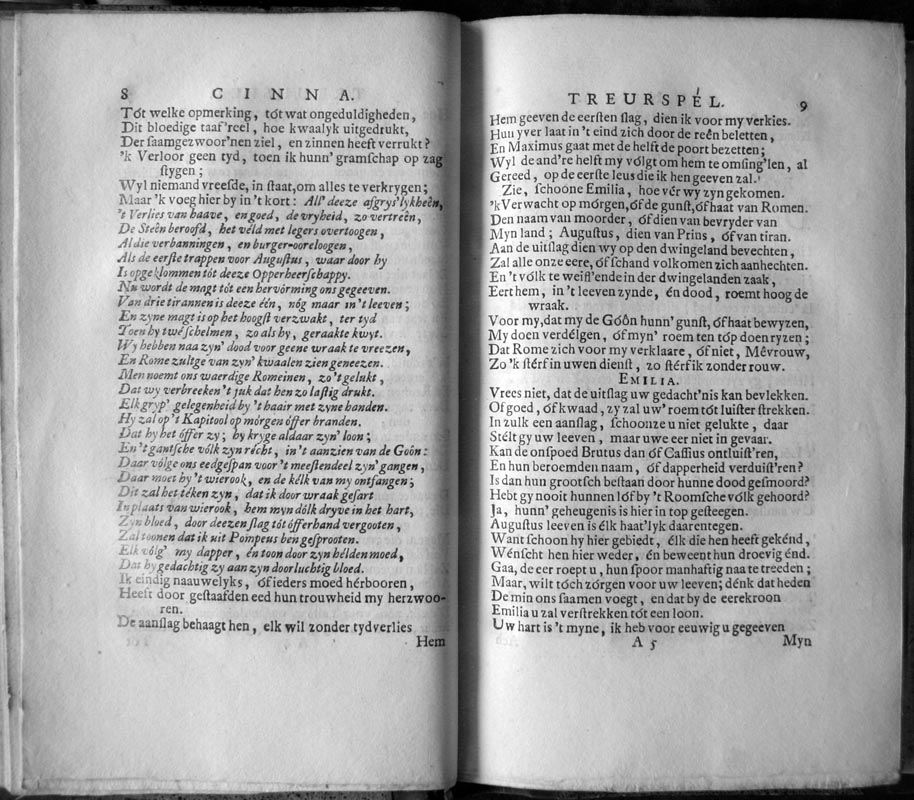 8 CINNA.
Tót welke opmerking, tót wat ongeduldigheden,
Dit bloedige taaf'reel, hoe kwaalyk uitgedrukt,
Der saamgezwoor'nen ziel, en zinnen heeft verrukt?
'k Verloor geen tyd, toen ik hunn' gramſchap op zag
ſtygen;
Wyl niemand vreeſde, in ſtaat, om alles te verkrygen;
Maar 'k voeg hier by in 't kort: All' deeze afgrys'lykheên,
't Verlies van haave, en goed, de vryheid, zo vertreên,
De Steên beroofd, het véld met legers overtoogen,
Al die verbanningen, en burger-oorloogen,
Als de eerſte trappen voor Auguſtus, waar door hy
Is opgeklommen tót deeze Opperheerſchappy.
Nu wordt de magt tót een hervórming ons gegeeven.
Van drie tirannen is deeze één, nóg maar in 't leeven;
En zyne magt is op het hoogſt verzwakt, ter tyd
Toen hy twé ſchelmen, zo als hy, geraakte kwyt.
Wy hebben naa zyn' dood voor geene wraak te vreezen,
En Rome zult ge van zyn' kwaalen zien geneezen.
Men noemt ons waerdige Romeinen, zo 't gelukt,
Dat wy verbreeken 't juk dat hen zo laſtig drukt.
Elk gryp' gelegenheid by 't haair met zyne handen.
Hy zal op 't Kapitool op mórgen óffer branden.
Dat hy het óffer zy; hy kryge aldaar zyn' loon;
En 't gantſche vólk zyn récht, in 't aanzien van de Goôn:
Daar vólge ons eedgeſpan voor 't meeſtendeel zyn' gangen,
Daar moet hy 't wierook, en de kélk van my ontfangen;
Dit zal het téken zyn, dat ik door wraak geſart
In plaats van wierook, hem myn dólk dryve in het hart,
Zyn bloed, door deezen ſlag tót ófferhand vergooten,
Zal toonen dat ik uit Pompeus ben geſprooten.
Elk vólg' my dapper, én toon door zyn hélden moed,
Dat hy gedachtig zy aan zyn doorluchtig bloed.
Ik eindig naauwelyks, óf ieders moed hérbooren,
Heeft door geſtaafden eed hun trouwheid my herzwoo-
ren.
De aanſlag behaagt hen, elk wil zonder tydverlies
Hem
TREURSPÉL. 9
Hem geeven de eerſten ſlag, dien ik voor my verkies.
Hun yver laat in 't eind zich door de reên beletten,
En Maximus gaat met de helft de poort bezetten;
Wyl de and're helft my vólgt om hem te omſing'len, al
Gereed, op de eerſte leus die ik hen geeven zal.
Zie, ſchoone Emilia, hoe vér wy zyn gekomen.
'k Verwacht op mórgen, óf de gunſt, óf haat van Romen.
Den naam van moorder, óf dien van bevryder van
Myn land; Auguſtus, dien van Prins, óf van tiran.
Aan de uitſlag dien wy op den dwingeland bevechten,
Zal alle onze eere, óf ſchand volkomen zich aanhechten.
En 't vólk te weiff'ende in der dwingelanden zaak,
Eert hem, in 't leeven zynde, én dood, roemt hoog de
wraak.
Voor my, dat my de Góôn hunn' gunſt, óf haat bewyzen,
My doen verdélgen, óf myn' roem ten tóp doen ryzen;
Dat Rome zich voor my verklaare, óf niet, Mêvrouw,
Zo 'k ſtérf in uwen dienſt, zo ſtérf ik zonder rouw.
EMILIA.
Vrees niet, dat de uitſlag uw gedacht'nis kan bevlekken.
Of goed, óf kwaad, zy zal uw' roem tót luiſter ſtrekken.
In zulk een aanſlag, ſchoonze u niet gelukte, daar
Stélt gy uw leeven, maar uwe eer niet in gevaar.
Kan de onſpoed Brutus dan óf Caſſius ontluiſt'ren,
En hun beroemden naam, óf dapperheid verduiſt'ren?
Is dan hun grootſch beſtaan door hunne dood geſmoord?
Hebt gy nooit hunnen lóf by 't Roomſche vólk gehoord?
Ja, hunn' geheugenis is hier in top geſteegen.
Auguſtus leeven is élk haat'lyk daarentegen.
Want ſchoon hy hier gebiedt, élk die hen heeft gekénd,
Wénſcht hen hier weder, én beweent hun droevig énd.
Gaa, de eer roept u, hun ſpoor manhaftig naa te treeden;
Maar, wilt tóch zórgen voor uw leeven; dénk dat heden
De min ons ſaamen voegt, en dat by de eerekroon
Emilia u zal verſtrekken tót een loon.
Uw hart is 't myne, ik heb voor eeuwig u gegeeven
A 5 Myn